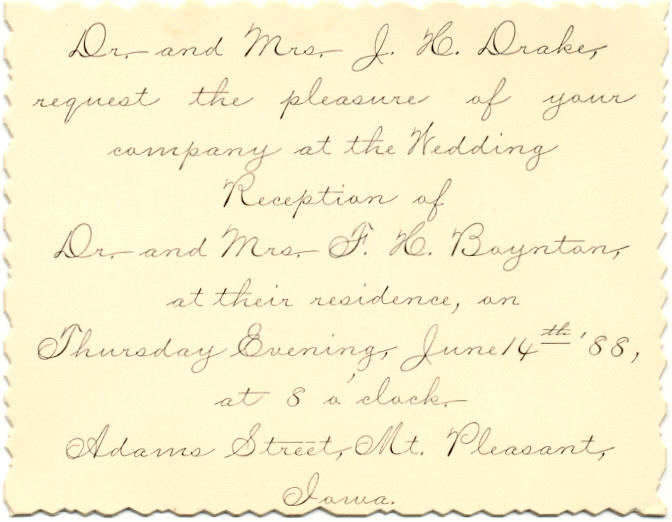 Dr. and Mrs. J. H. Drake,
request the pleasure of your
company at the Wedding
Reception of
Dr. and Mrs. F. H. Boynton,
at their residence, on
Thursday Evening, June 14th '88,
at 8 o'clock.
Adams Street, Mt. Pleasant,
Iowa.